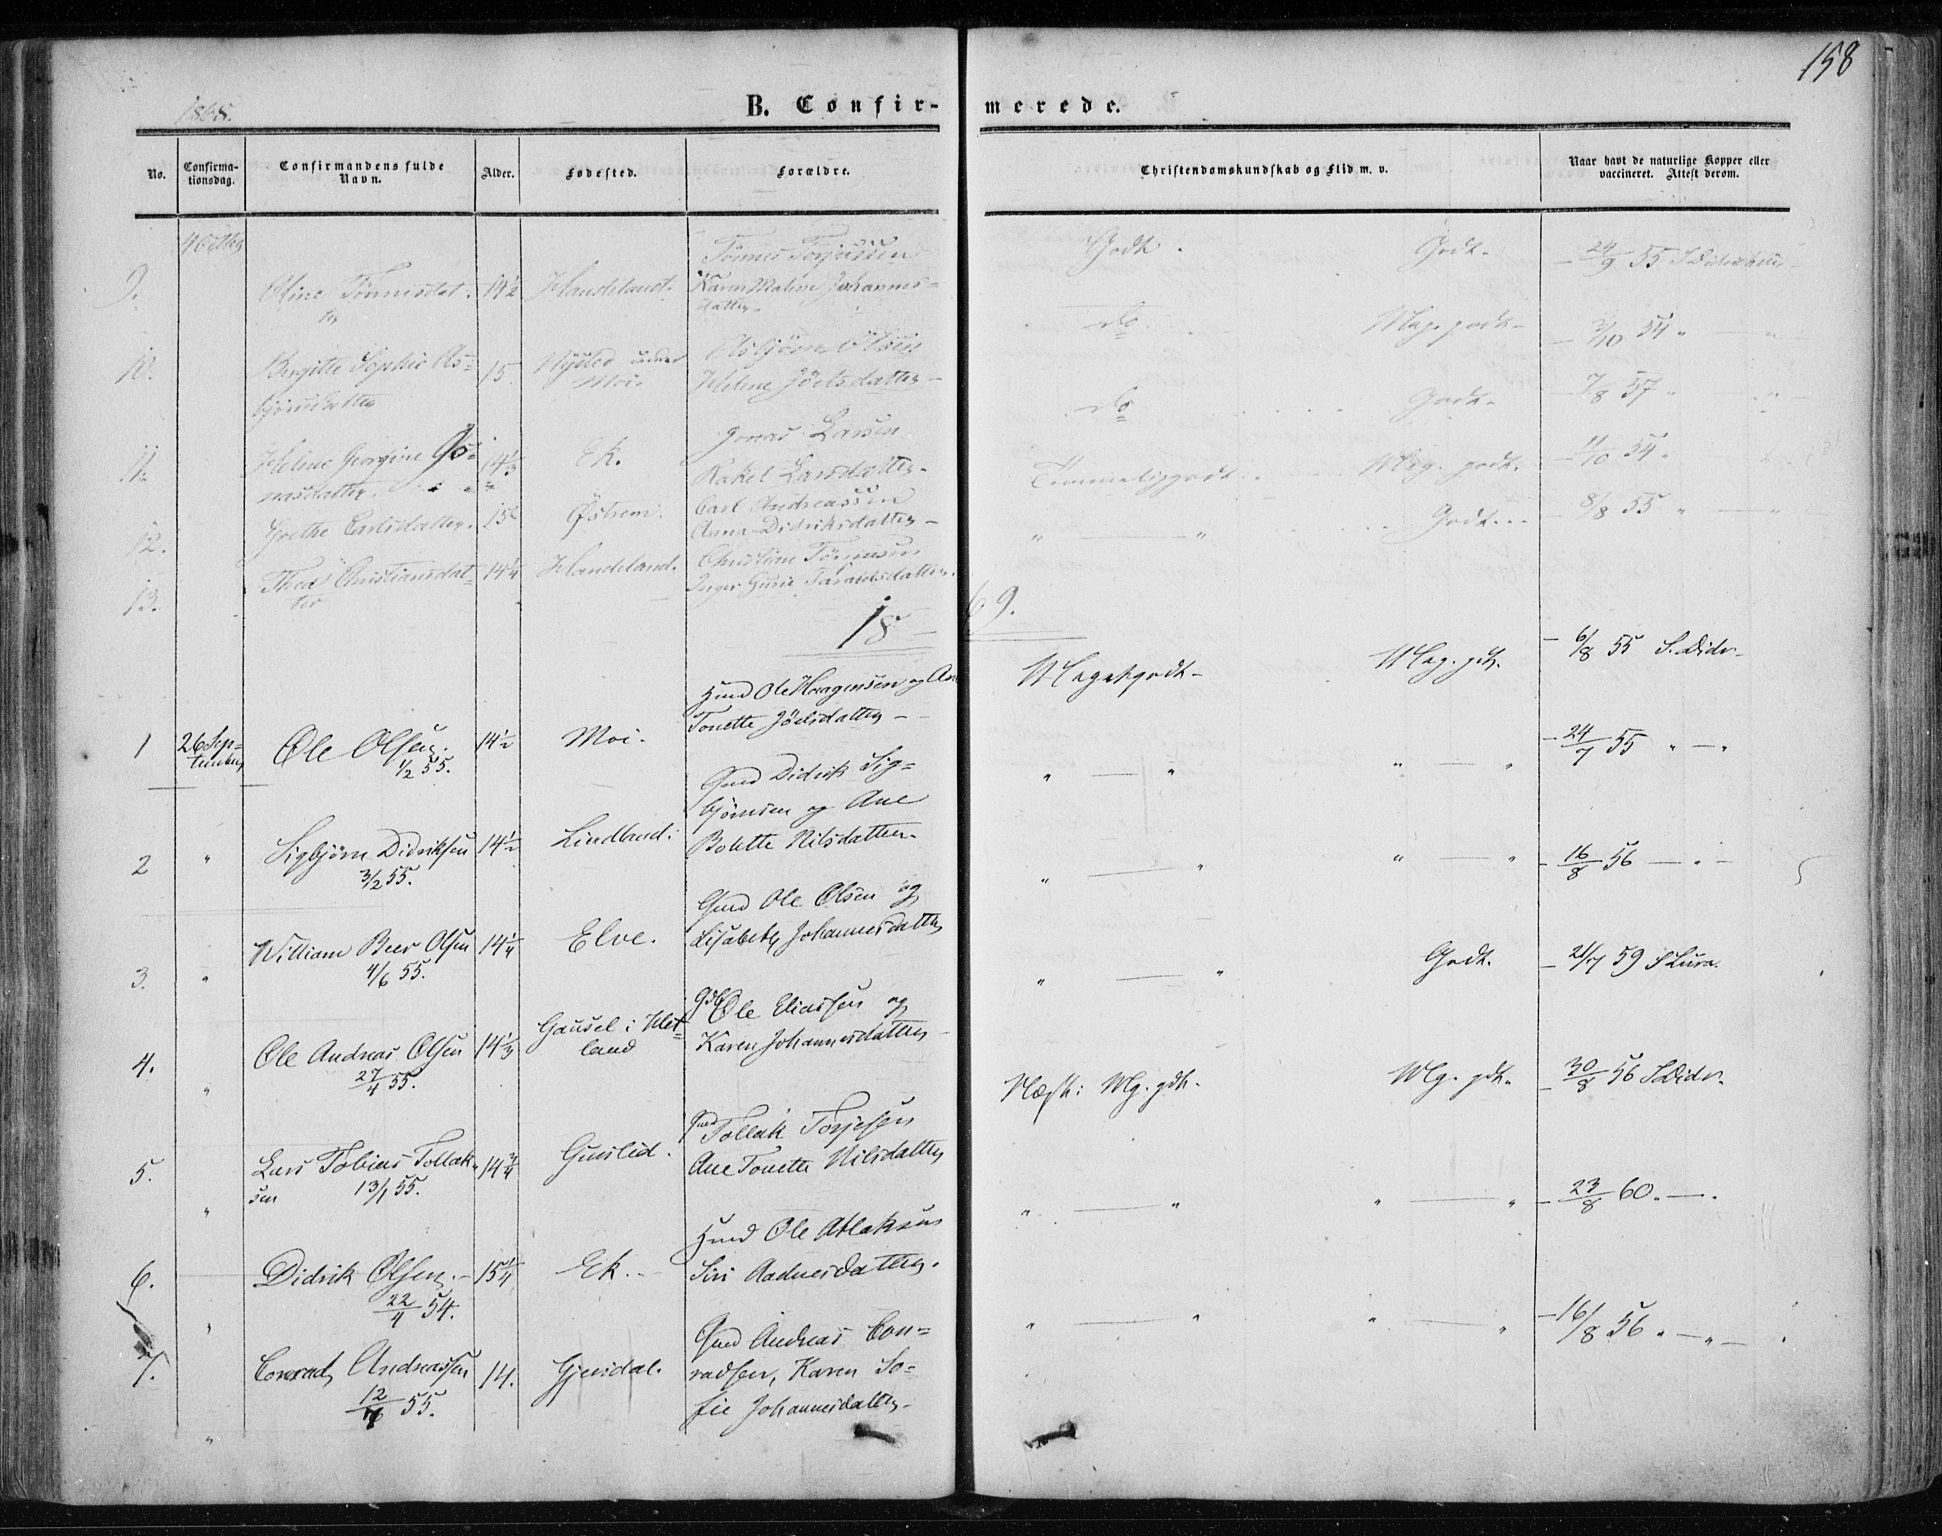 158
1868.
B. Confir- merede.
No. Confirma-tionsdag. Confirmandens fulde Navn. Alder. Fødested. Forældre. Christendomskundskab og Flid m. v. Naar havt de naturlige Kopper eller vaccineret. Attest derom.
4 Octbr
9. Oline Tønnesdat- ter 14½ Handeland. Tønnes Torjussen Karen Malene Johannes- datter. Godt. Godt. 24/9 55
10. Birgitte Sophie As- bjørnsdatter 15. Nysted under Moi. Asbjørn Olsen Helene Joelsdatter - do Meg. godt - 3/10 54 "
11. Helene Georgine Jo- nasdatter. 14⅓ Ek. Jonas Larsen Rakel Larsdatter - do Godt - 7/8 57 "
12. Grethe Carlsdatter. 15 Østrem. Carl Andreassen Anna Didriksdatter - Temmelig godt. Meg. godt. 11/10 54 "
13. Thea Christiansdat- ter 14¼ Handeland. Christian Tønnesen Inger Gurie Taraldsdatter. " — " Godt 8/8 55 " — "
18 69.
1 26 Sep- tember Ole Olsen. ½ 55. 14½ Moi. Hmd Ole Haagensen og Ane Tonette Joelsdatter - Meget godt - Meg. gdt. 6/8 55 S. Didr.
2 " Sigbjørn Didriksen 3/2 55. 14½ Lindland. Gmd Didrik Sig- bjørnsen og Ane Bolette Nilsdatter. " — " " — " 24/7 55 " — "
3. " William Beer Olsen 4/6 55. 14¼ Elve. Gmd Ole Olsen og Lisabeth Johannesdatter " — " " — " 16/8 56 — " —
4. " Ole Andreas Olsen 27/4 55. 14⅓ Gausel i Het- land Ole Eliassen og Karen Johannesdatter " — " Godt. 21/7 59 S Lura.
5. " Lars Tobias Tollak- sen 13/1 55. 14¾ Guslid. Gmd Tollak Torjesen Ane Tonette Nilsdatter Næst: Mg. gdt. Mg. gdt. 30/8 56 S Didr.
6. " Didrik Olsen. - 22/4 54. 15¼ Ek. - Hmd Ole Atlaksen Siri Aadnesdatter. " — " " — " 23/8 60 " — "
7. " Conrad Andreassen 12/7 55. 14. Gjersdal. Gmd Andreas Con- radsen, Karen So- fie Johannesdatter - " — " " — " 16/8 56 " — " —